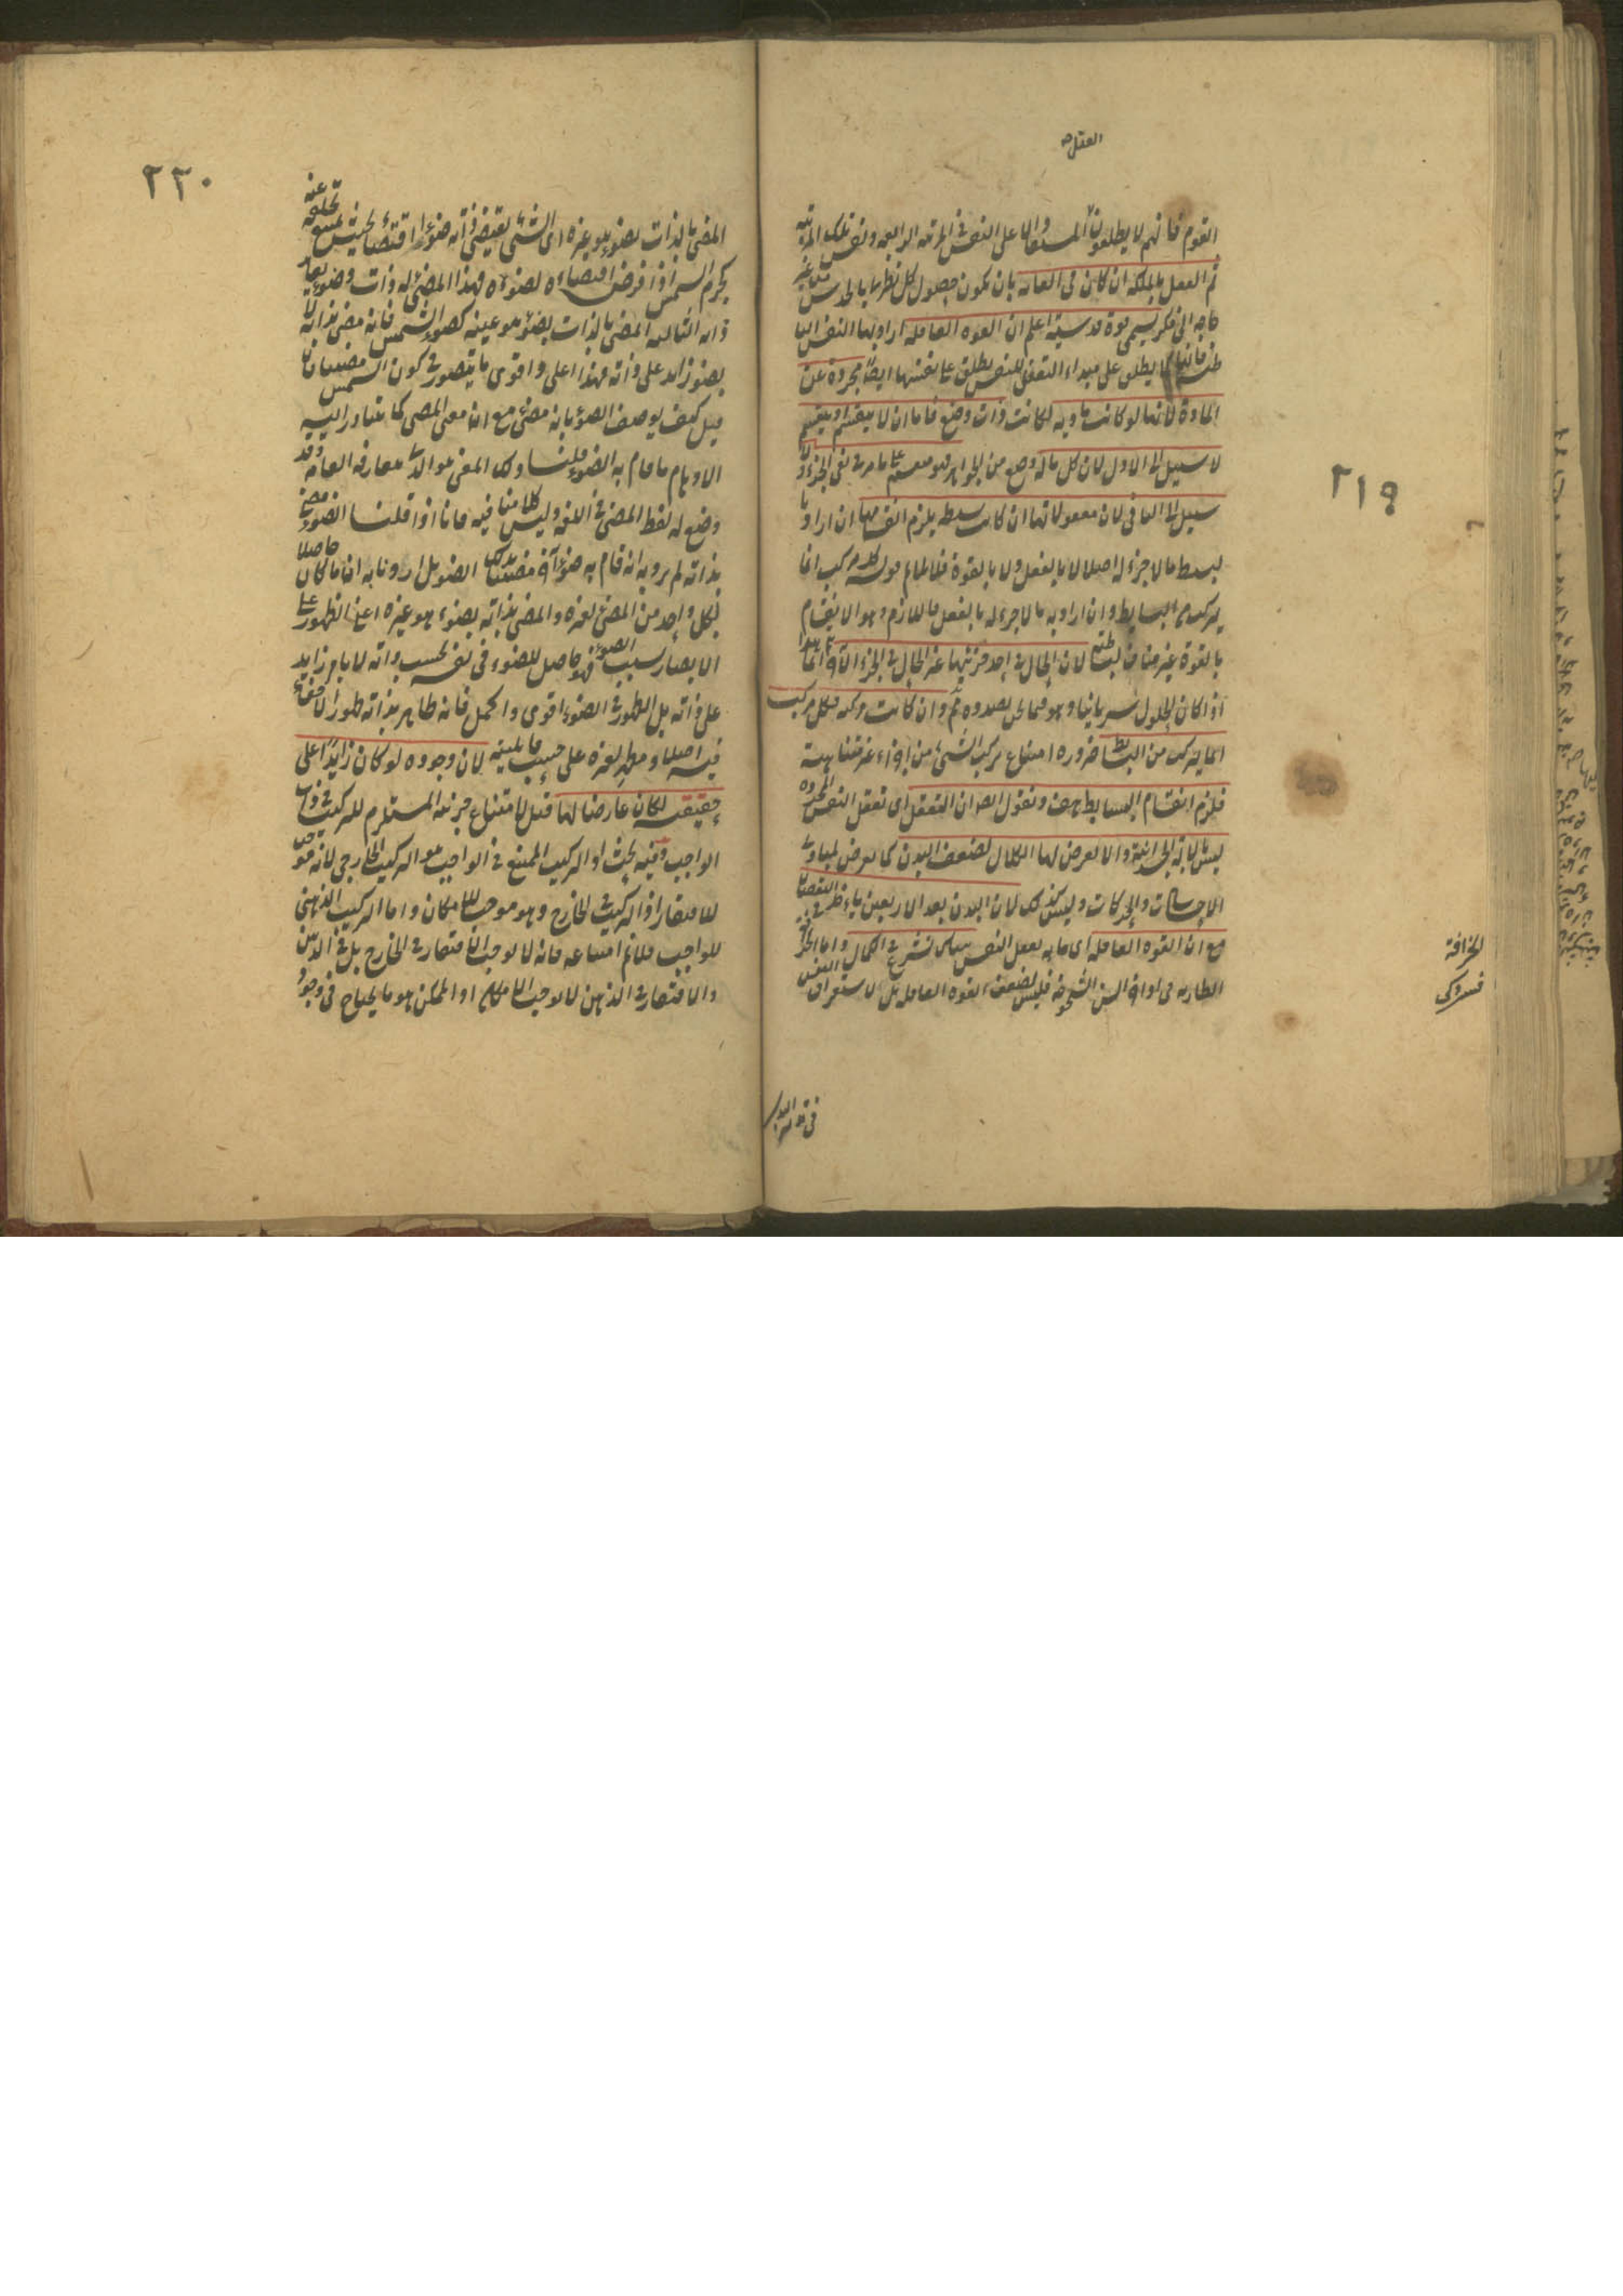 العقل
القوم فانهم لا يطلقون المستفاد على النفس في المرتبة الرابعة ونفس تلك المرتبة
ثم العقل بالملكة ان كان في الغاية بان يكون حصول كل نظري بالحدس من غير
حاجة الى فكر يسمى قوة قدسية اعلم ان القوة العاقلة اراد بها النفس
كما يطلق على مبداء التعقل للنفس يطلق على نفسها ايضا مجردة عن
المادة لانها لو كانت مادية لكانت ذات وضع فاما ان لا ينقسم او ينقسم
لا سبيل الى الاول لان كل ما له وضع من الجواهر فهو منقسم على ما مر في نفي الجزء ولا
سبيل الى الثاني لان معقولاتها ان كانت بسيطة يلزم انقسامها ان اراد با
لبسيط ما لا جزء له اصلا لا بالفعل ولا بالقوة فلا يلائم قوله كل مركب انما
يتركب من البسايط وان اراد به ما لا جزء له بالفعل فاللازم وهو الانقسام
بالقوة غير مناف لبساطته لان الحال في احد جزئيها غير الحال في الجزء الآخر انما
اذا كان الحلول سريانيا وهو فيما نحن بصدده ثم وان كانت مركبة فكل مركب
انما يتركب من البسايط ضرورة امتناع تركب الشئ من اجزاء غير متناهية
فيلزم انقسام البسايط هف ونقول ايضا ان التعقل اى تعقل النفس المجردة
ليس بالآلة الجسدانية والا لعرض لها الكلال لضعف البدن كما يعرض لمبادى
الاحساسات والحركات وليس كذلك لان البدن بعد الاربعين ياخذ في النقصان
مع ان القوة العاقلة اى ما به يعقل النفس هناك تشرع في الكمال واما الخرافة
الطارية في اواخر السن الشيخوخة فليس لضعف القوة العاقلة بل لاستغراق النفس
في تدبير البدن
٢١٩
الخرافة
٢٢٠
المضئ بالذات بضوء هو غيره اى الشئ يقتضى ذاته ضوءه اقتضاء بحيث يمتنع تخلفه عنه
كجرم الشمس اذا فرض اقتضاءه لضوءه فهذا المضئ له ذات وضوء يغاير
ذاته الثالثة المضئ بالذات بضوء هو عينه كضوء الشمس فانه مضئ بذاته لا
بضوء زايد على ذاته وهذا اعلى واقوى ما يتصور في كون الشئ مضيئا فان
قيل كيف يوصف الضوء بانه مضئ مع ان معنى المضئ كما يتبادر اليه
الاوهام ما قام به الضوء قلنا ذلك المعنى هو الذى يتعارفه العامة وقد
وضع له لفظ المضئ في اللغة وليس كلامنا فيه فانا اذا قلنا الضوء مضئ
بذاته لم نرد به انه قام به ضوء آخر فصار مضيئا بذلك الضوء بل اردنا به ان ما كان حاصلا
لكل واحد من المضئ لغيره والمضئ بذاته بضوء هو غيره اعنى الظهور على
الابصار بسبب الضوء فهو حاصل للضوء في نفسه بحسب ذاته لا بامر زايد
على ذاته بل الظهور في الضوء اقوى واكمل فانه ظاهر بذاته ظهورا لا خفاء
فيه اصلا ومظهر لغيره على حسب قابليته لان وجوده لو كان زايدا على
حقيقته لكان عارضا لها قيل لامتناع جزئيته المستلزم للتركيب في ذات
الواجب وفيه بحث اذ التركيب الممتنع في الواجب هو التركيب الخارجي لانه موجب
للافتقار اذ التركيب في الخارج وهو موجب للامكان واما التركيب الذهنى
للواجب فلا نم امتناعه فانه لا يوجب الافتقار في الخارج بل في الذهن
والافتقار في الذهن لا يوجب الامكان اذ الممكن هو ما يحتاج في وجوده